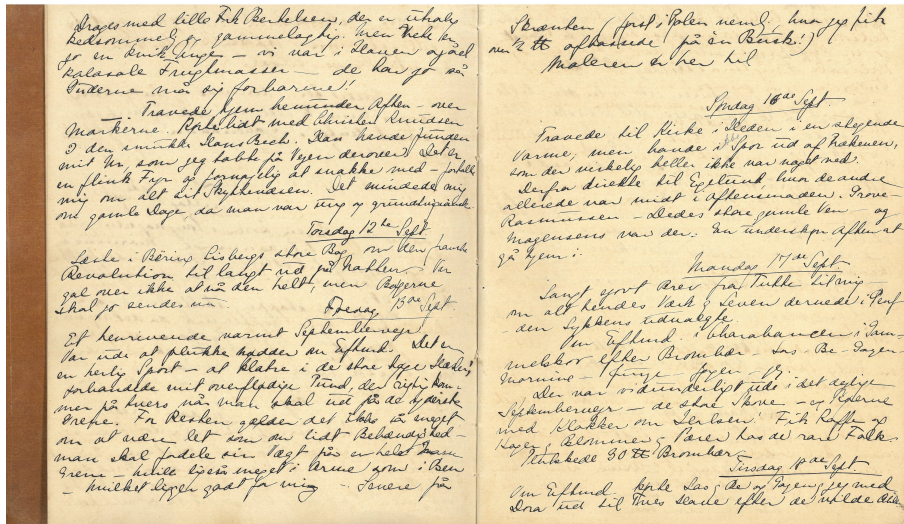 Drages med lille Frk Berthelsen, der er utrolig
kedsommelig og gammelagtig. Men Vebe er
jo en kvik Unge — vi var i Haven også
kolosale Frugtmasser — de har jo så
Guderne må sig forbarme!
Travede hjem henunder Aften — over
Markerne. Talte lidt med Christen Knudsen
I den smukke Hans Bech. Han havde funden
mit Ur, som jeg tabte på Vejen derover. Det er
en flink Fyr og fornøjelig at snakke med — fortalte
mig om alt sit Skyttevæsen. Det mindede mig
om gamle Dage da man var ung og grundtvigiansk
Torsdag 12te Sept
Læste i Børing Lisbergs store Bog om den franske
Revolution til langt ud på Natten. Var
gal over ikke at nå den helt, men Bøgerne
skal jo sendes nu
Fredag 13de Sept.
Et henrivende varmt Septembervejr!
Var ude at plukke Nødder m Eftmd. Det er
en herlig Sport — at klatre i de store høje Hassler,
forhandle mit overflødige Pund, der rigtig kom-
mer på tvers når man skal ud på de yderste
Grene. For Resten gælder det ikke så meget
om at være let som om lidt Behændighed —
man skal fordele sin Vægt på en helst
Grene — hvile ligeså meget i Arme som i Ben
— hvilket ligger godt for mig — Senere på
Skrænten (først i Polen neml. hvor jeg fik
over ½ tt afhasede på én Busk!)
Maleren er her til
Søndag 16de Sept
Travede til Kirke i Heden i en stegende
Varme, men havde i Spor ud af Prækenen,
som der virkelig heller ikke var noget ved.
Derfra direkte til Egelund, hvor de andre
allerede var midt i Aftensmaden. Provst
Rasmussen — Dedes store gamle Ven — og
Mogensens var der. En underskøn Aften at
gå hjem i.
Mandag 17de Sept
Langt sjovt Brev fra Tutte til mig
om alt hendes Værk og Leven dernede i Genf
den Lykkens udvalgte.
Om Eftmd i charabancen i Gam-
melskov efter Brombær. Las — Be — Gagen —
Morning — Junge — Jørgen — Jeg.
Der var vidunderligt ude i det dejlige
Septembervejr — de store Skove — og Køerne
med Klokker om Halsen! Fik Kaffe og
Kager, Blommer og Pærer hos de rare Folk.
Plukkede 30 tt Brombær
Tirsdag 18de Sept.
Om Eftmd. kørte Las, Be og Gagen og jeg med
Dora ud til Thres Have efter de vilde